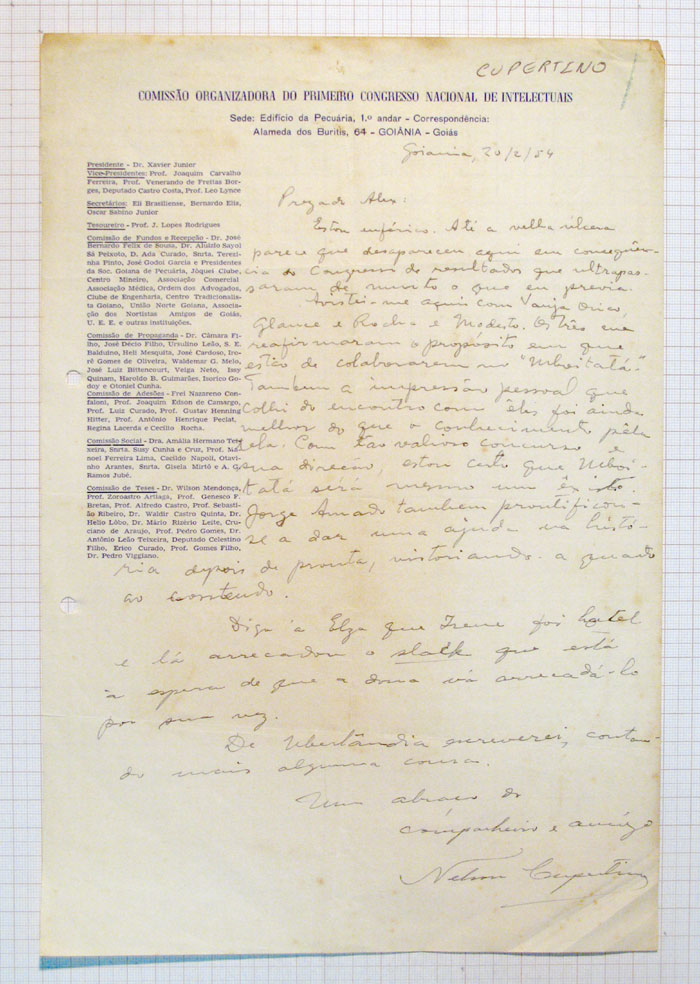 CUPERTINO
COMISSÃO ORGANIZADORA DO PRIMEIRO CONGRESSO NACIONAL DE INTELECTUAIS
Sede: Edifício da Pecuária, 1.º andar - Correspondência:
Alameda dos Buritis, 64 - GOIÂNIA - Goiás
Presidente - Dr. Xavier Junior
Vice-Presidentes: Prof. Joaquim Carvalho
Ferreira, Prof. Venerando de Freitas Bor-
ges, Deputado Castro Costa, Prof. Leo Lynce
Secretários: Eli Brasiliense, Bernardo Elis,
Oscar Sabino Junior
Tesoureiro - Prof. J. Lopes Rodrigues
Comissão de Fundos e Recepção - Dr. José
Bernardo Felix de Sousa, Dr. Aluísio Sayol
Sá Peixoto, D. Ada Curado, Snrta. Terezi-
nha Pinto, José Godoi Garcia e Presidentes
da Soc. Goiana de Pecuária, Jóquei Clube,
Centro Mineiro, Associação Comercial,
Associação Médica, Ordem dos Advogados,
Clube de Engenharia, Centro Tradicionalis-
ta Goiano, União Norte Goiana, Associa-
ção dos Nortistas Amigos de Goiás,
U. E. E. e outras instituições.
Comissão de Propaganda - Dr. Câmara Fi-
lho, José Décio Filho, Ursulino Leão, S. E.
Balduino, Heli Mesquita, José Cardoso, Iro-
rê Gomes de Oliveira, Waldemar G. Melo,
José Luiz Bittencourt, Veiga Neto, Issy
Quinam, Haroldo B. Guimarães, Inorico Go-
doy e Otoniel Cunha.
Comissão de Adesões - Frei Nazareno Con-
faloni, Prof. Joaquim Edison de Camargo,
Prof. Luiz Curado, Prof. Gustav Henning
Hitter, Prof. António Henrique Peclat,
Regina Lacerda e Cecilio Rocha.
Comissão Social - Dra. Amália Hermano Tei-
xeira, Snrta. Susy Cunha e Cruz, Prof. Ma-
noel Ferreira Lima, Cacildo Napoli, Otavi-
nho Arantes, Snrta. Gisela Mirtô e A. G.
Ramos Jubé.
Comissão de Teses - Dr. Wilson Mendonça,
Prof. Zoroastro Artiaga, Prof. Genesco F.
Bretas, Prof. Alfredo Castro, Prof. Sebasti-
ão Ribeiro, Dr. Waldir Castro Quinta, Dr.
Helio Lôbo, Dr. Mário Rizério Leite, Cru-
ciano de Araujo, Prof. Pedro Gomes, Dr.
Antônio Leão Teixeira, Deputado Celestino
Filho, Erico Curado, Prof. Gomes Filho,
Dr. Pedro Viggiano.
Goiania, 20/2/54
Prezado Alex:
Estou eufórico. Até a velha úlcera
parece que desapareceu aqui em consequên-
cia do Congresso de resultados que ultrapas-
saram de muito o que eu previa.
Avistei-me aqui com Vanja Orico,
Glauce e Rocha e Modesto. Os três me
reafirmaram o propósito em que
estão de colaborarem no "Mboitatá".
Tambem a impressão pessoal que
colhi do encontro com êles foi ainda
melhor do que o conhecimento pela
tela. Com tão valioso concurso e
sua direcão, estou certo que Mboi-
tatá será mesmo um êxito.
Jorge Amado tambem prontificou-
se a dar uma ajuda na histó-
ria depois de pronta, vistoriando-a quanto
ao conteúdo.
Diga à Elza que Irene foi hotel
e lá arrecadou o slack que está
à espera de que a dona vá arrecadá-lo
por sua vez.
De Uberlândia escreverei, contan-
do mais alguma cousa.
Um abraco do
companheiro e amigo
Nelson Cupertino